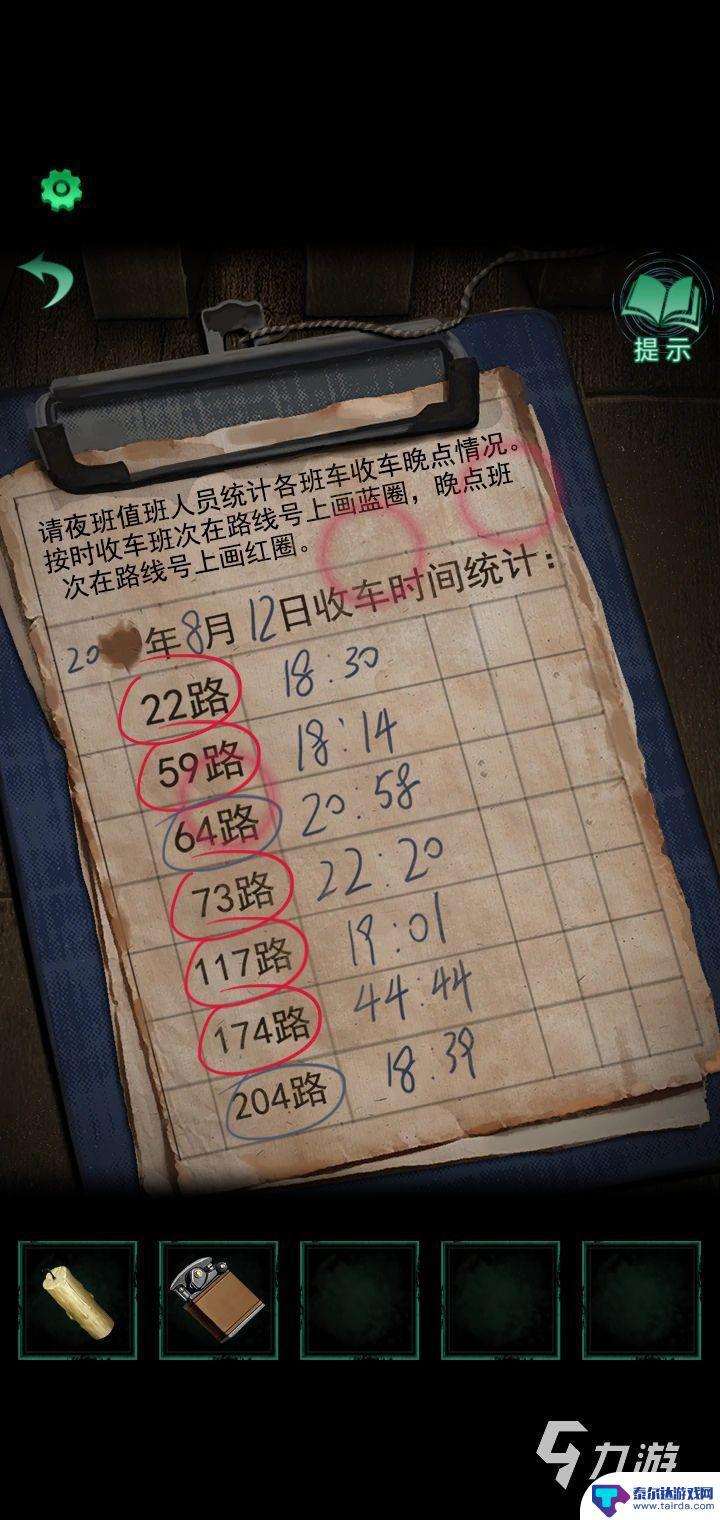 提示
请夜班值班人员统计各班车收车晚点情况。
按时收车班次在路线号上画蓝圈，晚点班
次在路线号上画红圈。
20 年8月12日收车时间统计：
22路 18:30
59路 18:14
64路 20:58
73路 22:20
117路 19:01
174路 44:44
204路 18:39
九游
泰尔达游戏网
www.tairda.com